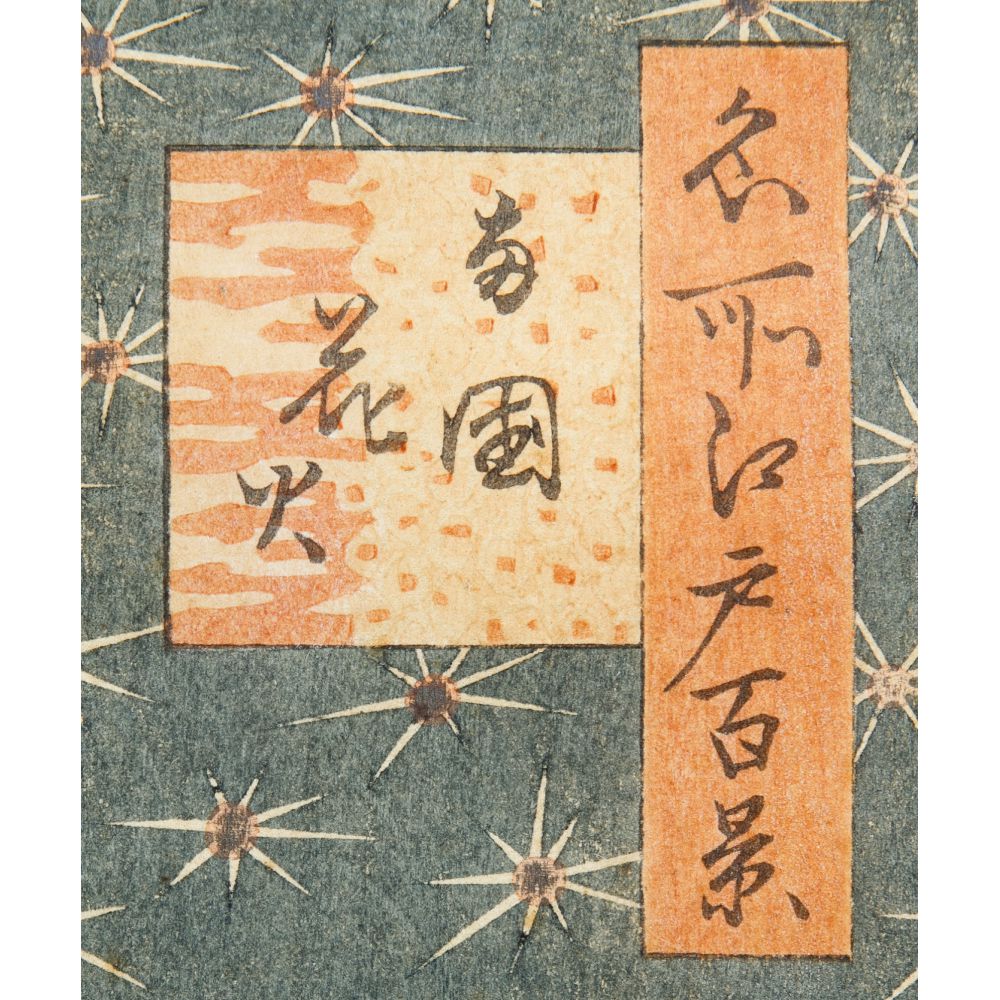 名所江戸百景
両國
花火